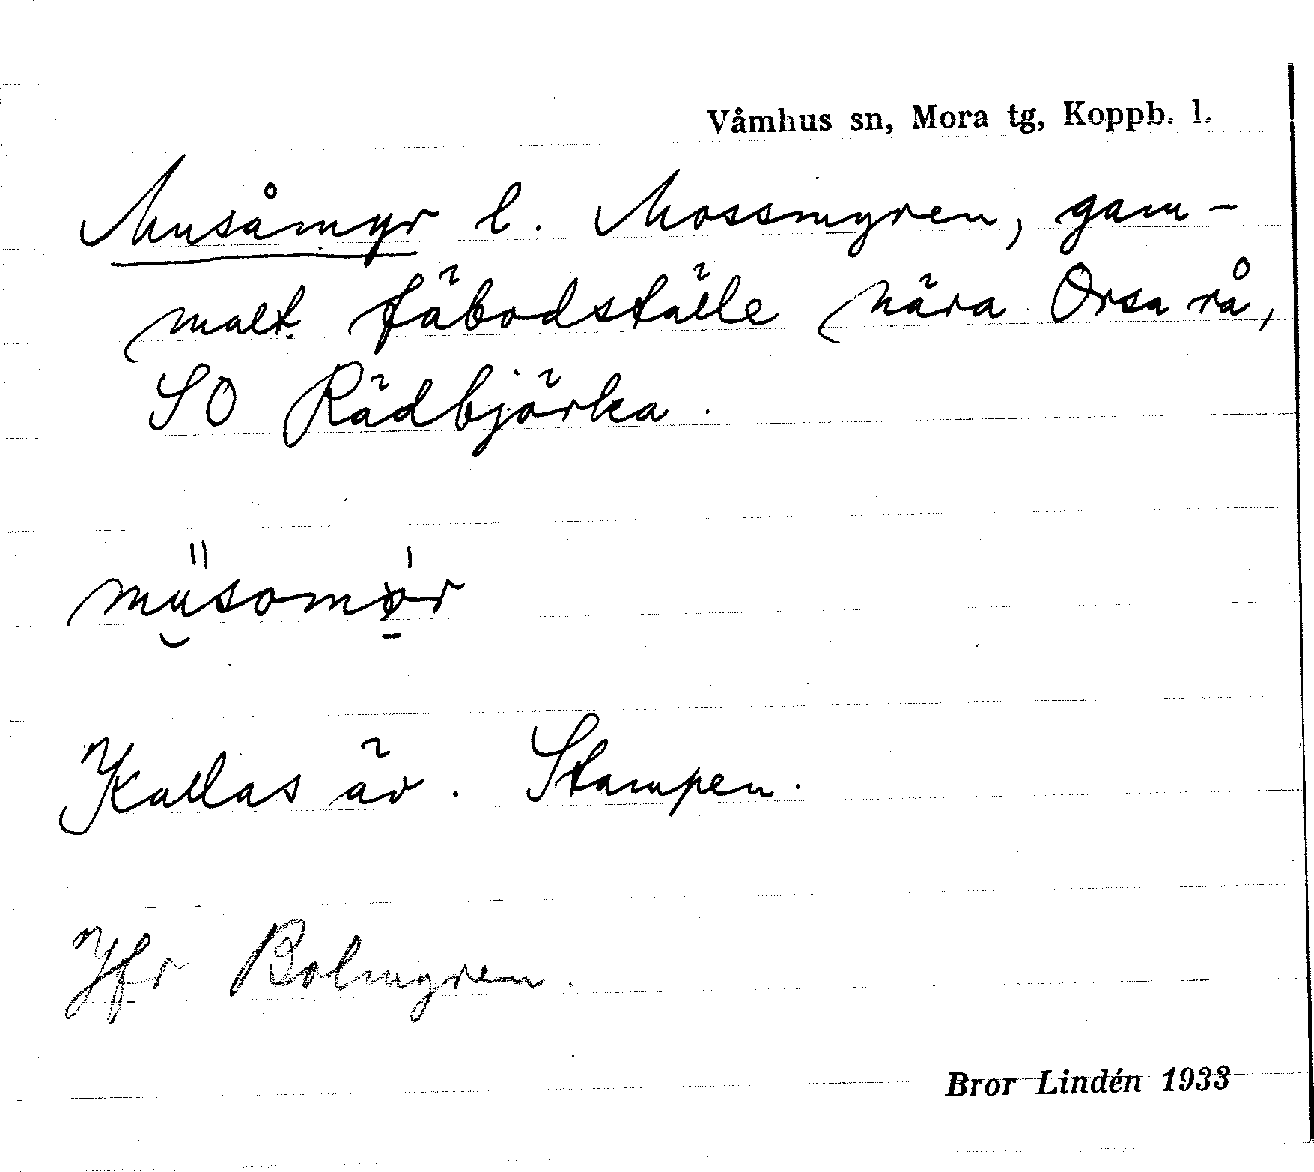 Våmhus sn, Mora tg, Koppb. l.
Musåmyr l. Mossmyren, gam-
malt fäbodställe nära Orsa rå,
SO Rädbjörka.
Kallas äv. Stampen.
Jfr Bolmyren.
Bror Lindén 1933